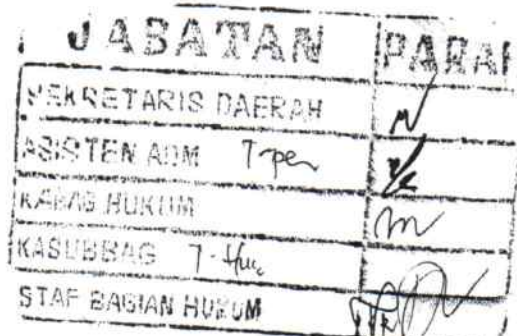 JABATAN PARAF
SEKRETARIS DAERAH
ASISTEN ADM
KABAG HUKUM
KASUBBAG
STAF BAGIAN HUKUM